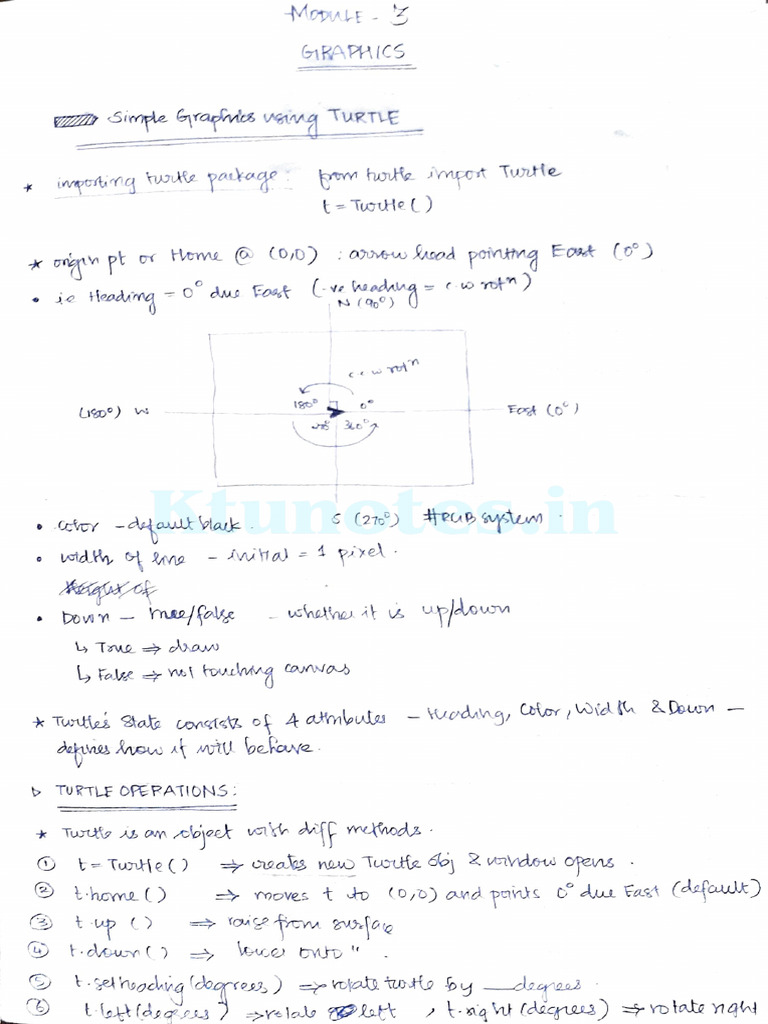 MODULE - 3
GRAPHICS
Simple Graphics using TURTLE
* importing turtle package: from turtle import Turtle
t = Turtle()
* origin pt or Home @ (0,0) : arrow head pointing East (0°)
• ie Heading = 0° due East (-ve heading = c.w rotn)
N (90°)
c.c.w rotn
180° 0°
(180°) W East (0°)
270° 360°
Ktunotes.in
• color - default black. S (270°) #RGB system.
• width of line - initial = 1 pixel.
Height of
• Down - true/false - whether it is up/down
↳ True ⇒ draw
↳ False ⇒ not touching canvas
* Turtle's State consists of 4 attributes - Heading, Color, Width & Down -
defines how it will behave.
▷ TURTLE OPERATIONS:
* Turtle is an object with diff methods.
① t = Turtle() ⇒ creates new Turtle obj & window opens.
② t.home() ⇒ moves t to (0,0) and points 0° due East (default)
③ t.up () ⇒ raise from surface
④ t.down() ⇒ lower onto " .
⑤ t.setheading(degrees) ⇒ rotate turtle by __ degrees.
⑥ t.left(degrees) ⇒ rotate left , t.right(degrees) ⇒ rotate right